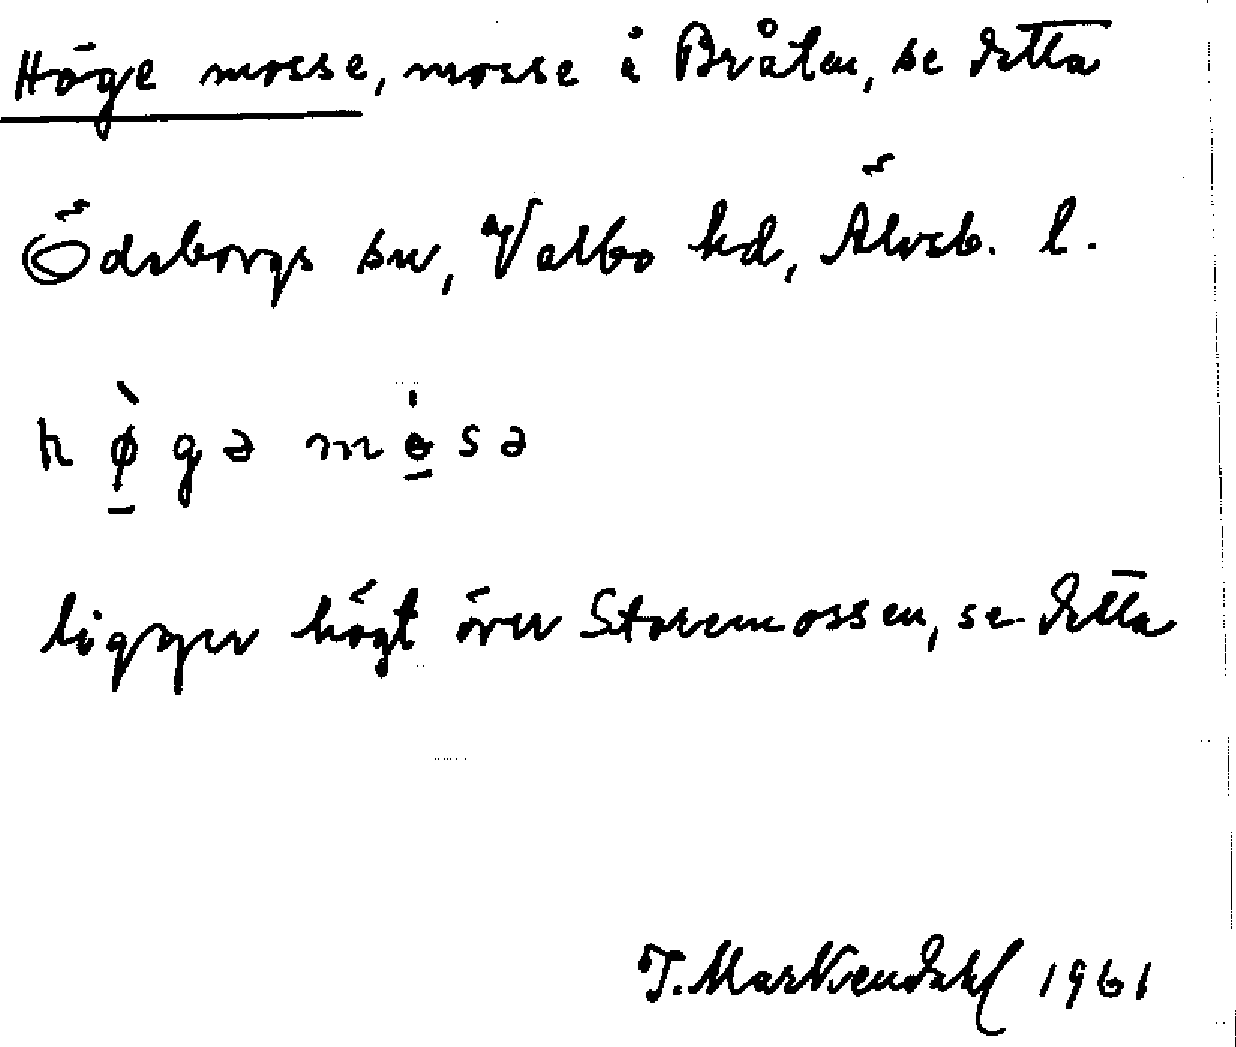 Höge mosse, mosse i Bråten, se detta
Ödeborgs sn, Valbo hd, Älvsb. l.
hø̀gə mɵ̍sə
ligger högt över Storemossen, se detta
T. Markendahl 1961